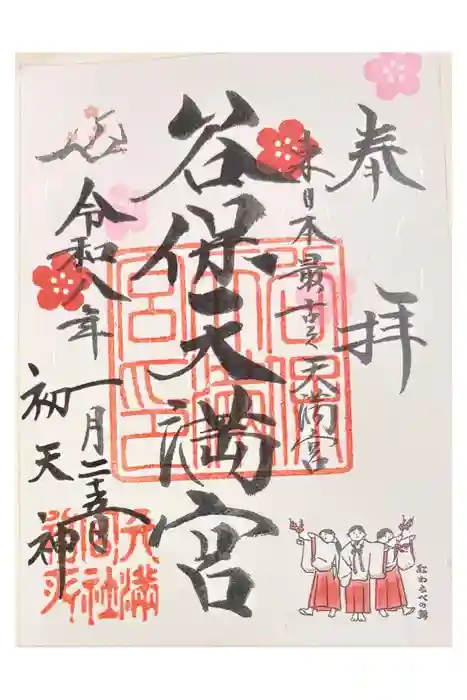 奉拝
東日本最古之天満宮
谷保天満宮
令和八年一月二十五日
初天神
紅わらべの舞